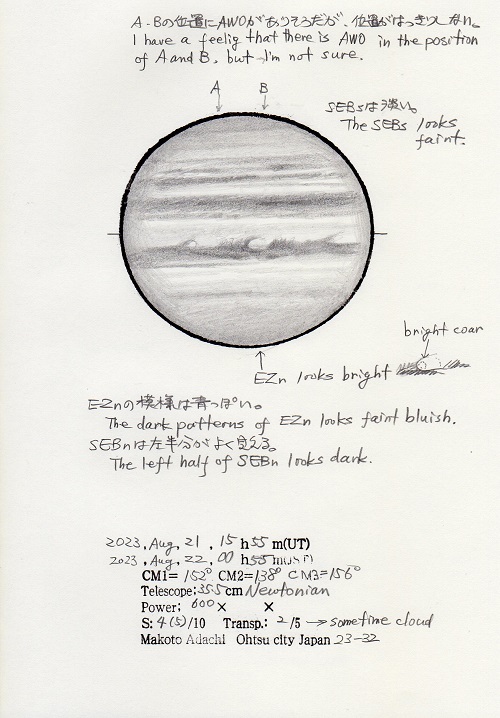 A・Bの位置にAWOがありそうだが、位置がはっきりしない。
I have a feelig that there is AWO in the position
of A and B, but I'm not sure.
A B
SEBsは淡い。
The SEBs looks
faint.
bright coar
EZn looks bright
EZnの模様は青っぽい。
The dark patterns of EZn looks faint bluish.
SEBnは左半分がよく見える。
The left half of SEBn looks dark.
2023, Aug, 21, 15 h 55 m(UT)
2023, Aug, 22, 00 h 55 m(JST)
CM1= 152° CM2=138° CM3=156°
Telescope: 355 cm Newtonian
Power; 600 × ×
S: 4(5)/10 Transp.: 2/5 → sometime cloud
Makoto Adachi Ohtsu city Japan 23-32